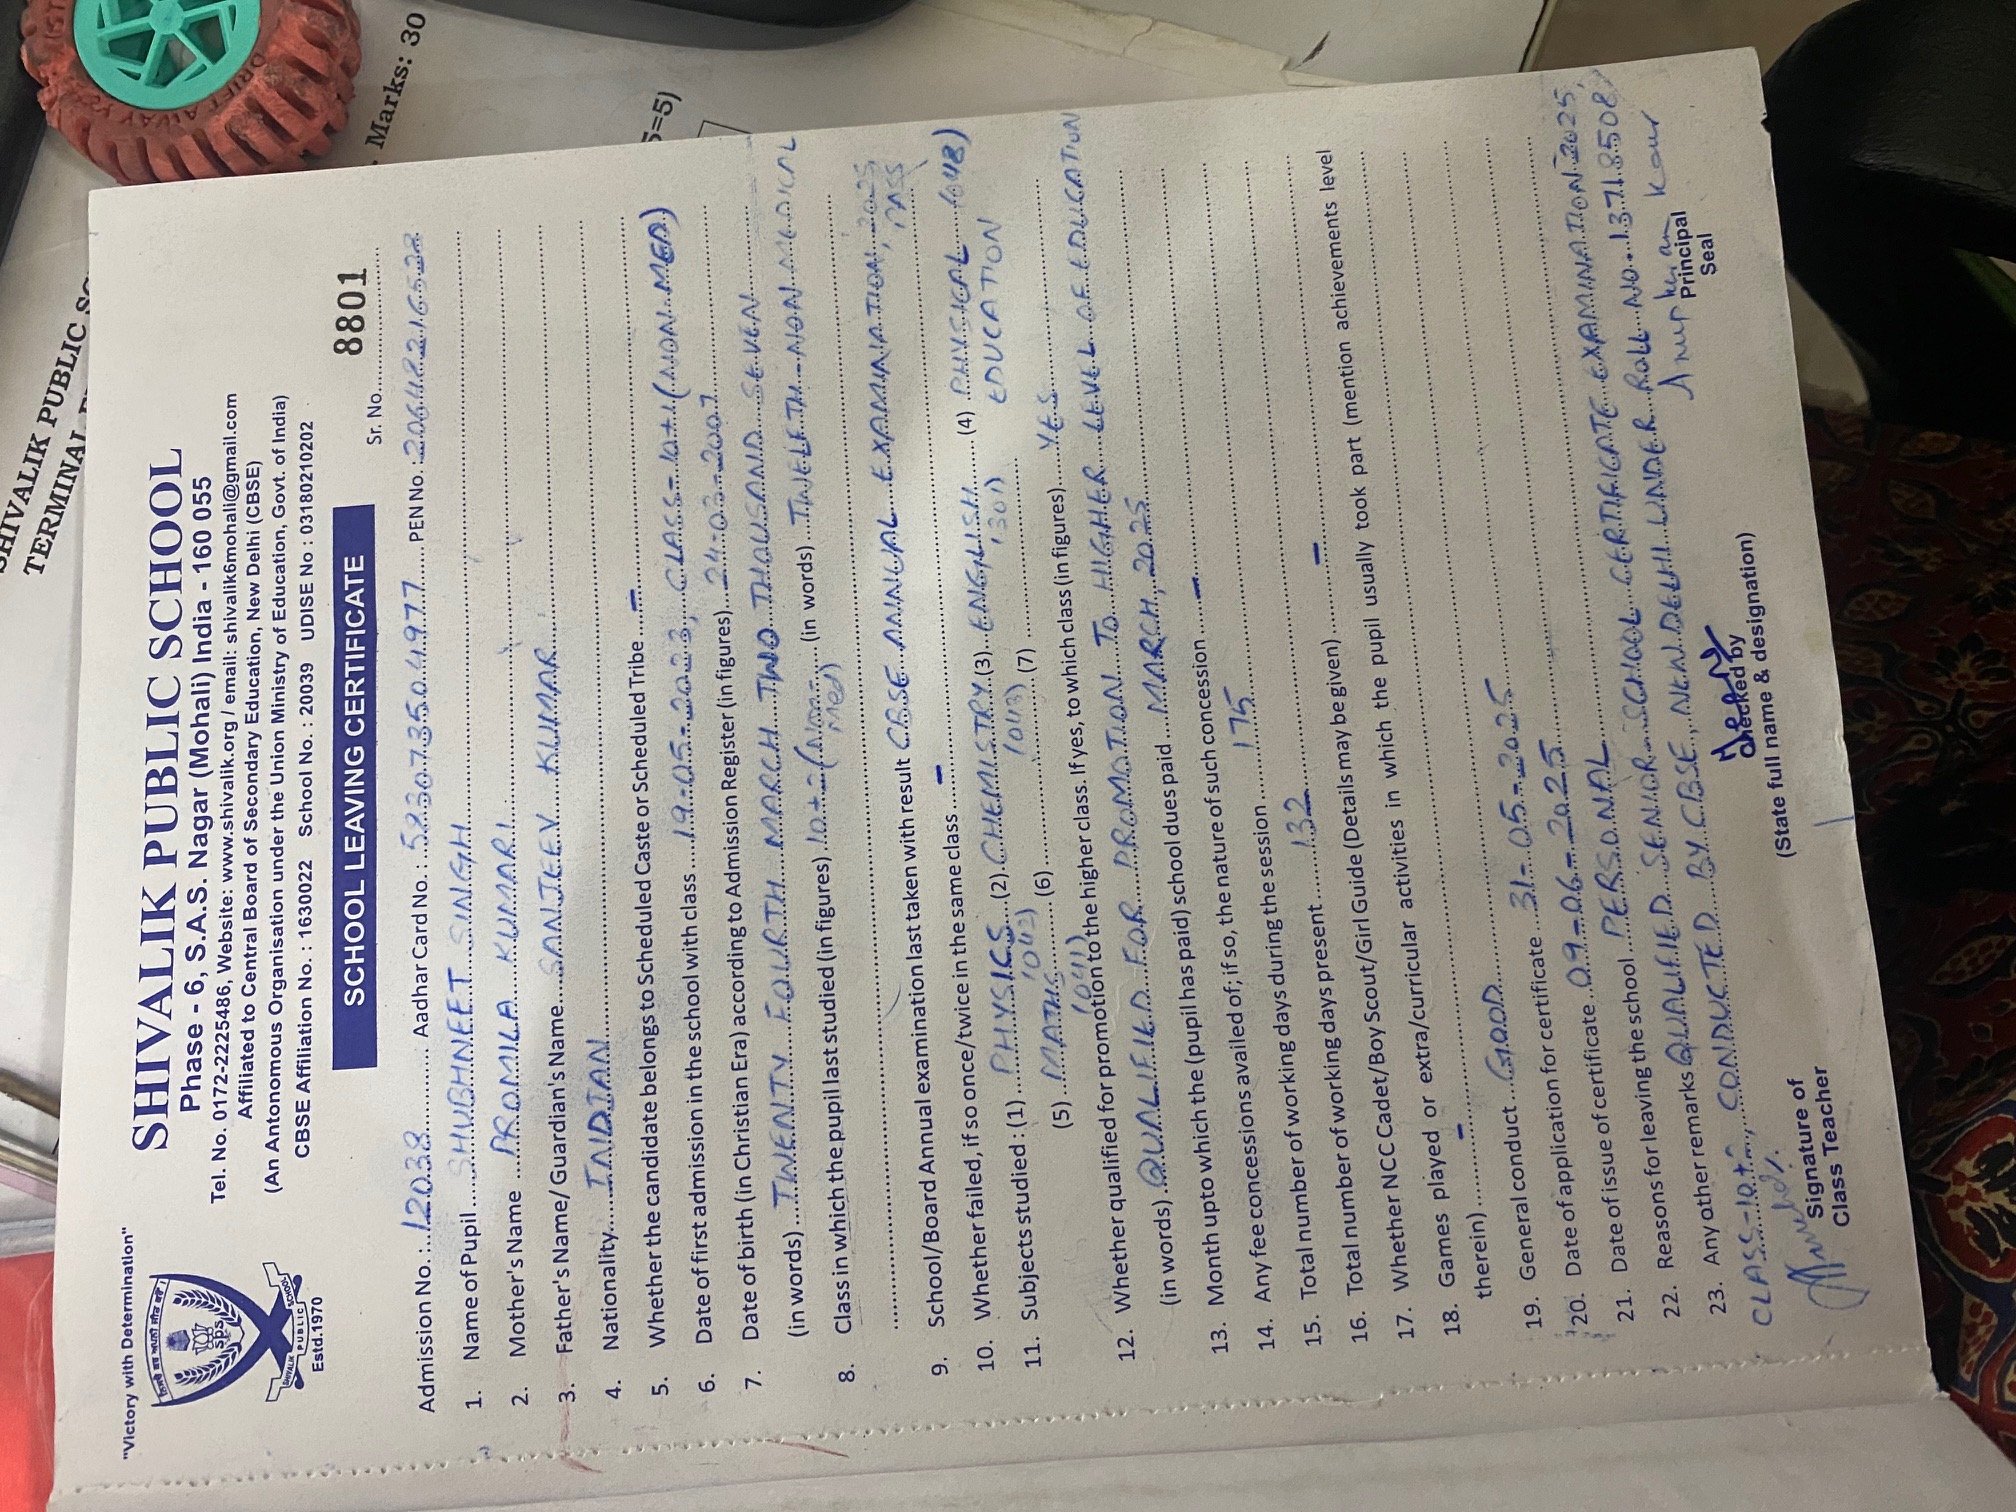 "Victory with Determination"
SHIVALIK PUBLIC SCHOOL
Phase - 6, S.A.S. Nagar (Mohali) India - 160 055
Tel. No. 0172-2225486, Website: www.shivalik.org / email: shivalik6mohali@gmail.com
Affiliated to Central Board of Secondary Education, New Delhi (CBSE)
(An Antonomous Organisation under the Union Ministry of Education, Govt. of India)
CBSE Affiliation No. : 1630022 School No. : 20039 UDISE No : 03180210202
SPS
SHIVALIK PUBLIC SCHOOL
Estd.1970
SCHOOL LEAVING CERTIFICATE
Sr. No. 8801
Admission No. : 12038 Aadhar Card No. : 593073504977 PEN No : 20648216528
1. Name of Pupil SHUBHNEET SINGH
2. Mother's Name PROMILA KUMARI
3. Father's Name/ Guardian's Name SANJEEV KUMAR
4. Nationality INDIAN
5. Whether the candidate belongs to Scheduled Caste or Scheduled Tribe –
6. Date of first admission in the school with class 19-05-2023, CLASS-10+1 (NON MED)
7. Date of birth (in Christian Era) according to Admission Register (in figures) 24-03-2007
(in words) TWENTY FOURTH MARCH TWO THOUSAND SEVEN
8. Class in which the pupil last studied (in figures) 10+2 (Non Med) (in words) TWELETH-NON-MEDICAL
9. School/Board Annual examination last taken with result CBSE ANNUAL EXAMINATION, 2025 PASS
10. Whether failed, if so once/twice in the same class –
11. Subjects studied : (1) PHYSICS (042) (2) CHEMISTRY (043) (3) ENGLISH (301) (4) PHYSICAL EDUCATION (048)
(5) MATHS (041) (6) (7)
12. Whether qualified for promotion to the higher class. If yes, to which class (in figures) YES
(in words) QUALIFIED FOR PROMOTION TO HIGHER LEVEL OF EDUCATION
13. Month upto which the (pupil has paid) school dues paid MARCH, 2025
14. Any fee concessions availed of; if so, the nature of such concession –
15. Total number of working days during the session 175
16. Total number of working days present 132
17. Whether NCC Cadet/Boy Scout/Girl Guide (Details may be given) –
18. Games played or extra/curricular activities in which the pupil usually took part (mention achievements level
therein) –
19. General conduct GOOD
20. Date of application for certificate 31-05-2025
21. Date of issue of certificate 09-06-2025
22. Reasons for leaving the school PERSONAL
23. Any other remarks QUALIFIED SENIOR SCHOOL CERTIFICATE EXAMINATION-2025,
CLASS-10+2, CONDUCTED BY CBSE, NEW DELHI UNDER ROLL NO. 13718508
Anupkiran Kaur
Signature of
Class Teacher
Checked by
(State full name & designation)
Principal
Seal
SHIVALIK PUBLIC
TERMINAL
Marks: 30
5=5)